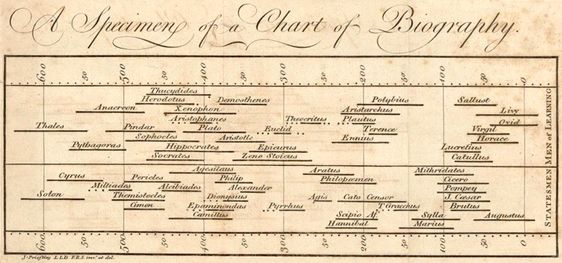 A Specimen of a Chart of Biography.
600 50 500 50 400 50 300 50 200 50 100 50 0
Thucydides
Herodotus Demosthenes Polybius Sallust
Anacreon Xenophon Aristarchus Livy
Aristophanes Theocritus Plautus Ovid
Thales Pindar Plato Euclid Terence Virgil
Sophocles Aristotle Ennius Horace
Pythagoras Hippocrates Epicurus Lucretius
Socrates Zeno Stoicus Catullus
MEN OF LEARNING
Agesilaus Aratus Mithridates
Cyrus Pericles Philip Philopœmen Cicero
Miltiades Alcibiades Alexander Pompey
Solon Themistocles Dionysius Agis Cato Censor J. Cæsar
Cimon Epaminondas Pyrrhus T Gracchus Brutus
Camillus Scipio Af. Sylla Augustus
Hannibal Marius
STATESMEN
600 50 500 50 400 50 300 50 200 50 100 50 0
J. Priestley L.L.D. F.R.S. inv.t et del.